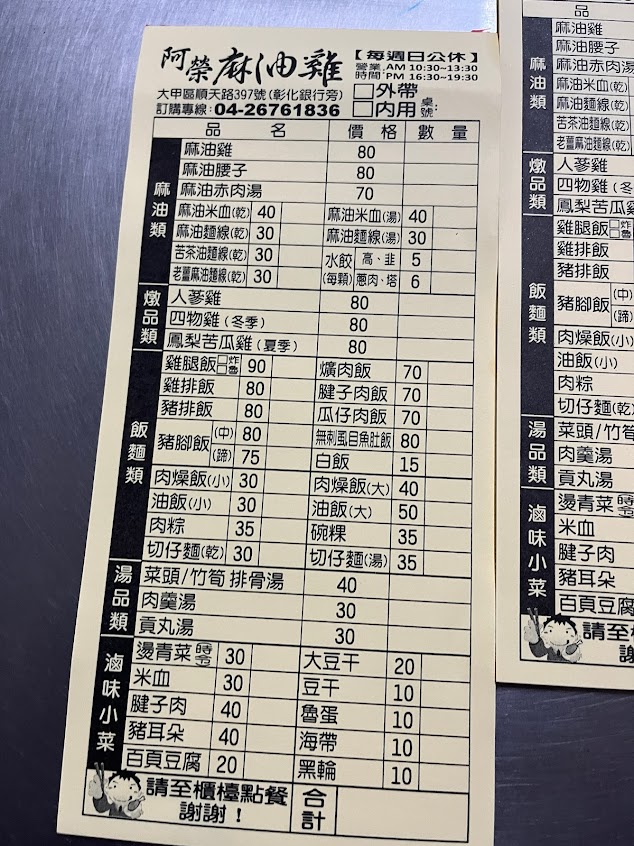 阿榮麻油雞 【每週日公休】
營業時間 AM 10:30~13:30 PM 16:30~19:30
大甲區順天路397號(彰化銀行旁) □外帶
訂購專線:04-26761836 □內用 桌號:
品 名 價 格 數 量
麻油類
麻油雞 80
麻油腰子 80
麻油赤肉湯 70
麻油米血(乾) 40 麻油米血(湯) 40
麻油麵線(乾) 30 麻油麵線(湯) 30
苦茶油麵線(乾) 30 水餃(每顆) 高、韭 5
老薑麻油麵線(乾) 30 蔥肉、塔 6
燉品類
人蔘雞 80
四物雞(冬季) 80
鳳梨苦瓜雞(夏季) 80
飯麵類
雞腿飯 □炸 □魯 90 爌肉飯 70
雞排飯 80 腱子肉飯 70
豬排飯 80 瓜仔肉飯 70
豬腳飯 (中) 80 無刺虱目魚肚飯 80
(蹄) 75 白飯 15
肉燥飯(小) 30 肉燥飯(大) 40
油飯(小) 30 油飯(大) 50
肉粽 35 碗粿 35
切仔麵(乾) 30 切仔麵(湯) 35
湯品類
菜頭/竹筍 排骨湯 40
肉羹湯 30
貢丸湯 30
滷味小菜
燙青菜 時令 30 大豆干 20
米血 30 豆干 10
腱子肉 40 魯蛋 10
豬耳朵 40 海帶 10
百頁豆腐 20 黑輪 10
請至櫃檯點餐
謝謝! 合計
品
麻油類
麻油雞
麻油腰子
麻油赤肉湯
麻油米血(乾)
麻油麵線(乾)
苦茶油麵線(乾)
老薑麻油麵線(乾)
燉品類
人蔘雞
四物雞(冬
鳳梨苦瓜雞
飯麵類
雞腿飯 □炸 □魯
雞排飯
豬排飯
豬腳飯 (中)
(蹄)
肉燥飯(小)
油飯(小)
肉粽
切仔麵(乾)
湯品類
菜頭/竹筍
肉羹湯
貢丸湯
滷味小菜
燙青菜 時令
米血
腱子肉
豬耳朵
百頁豆腐
請至
謝